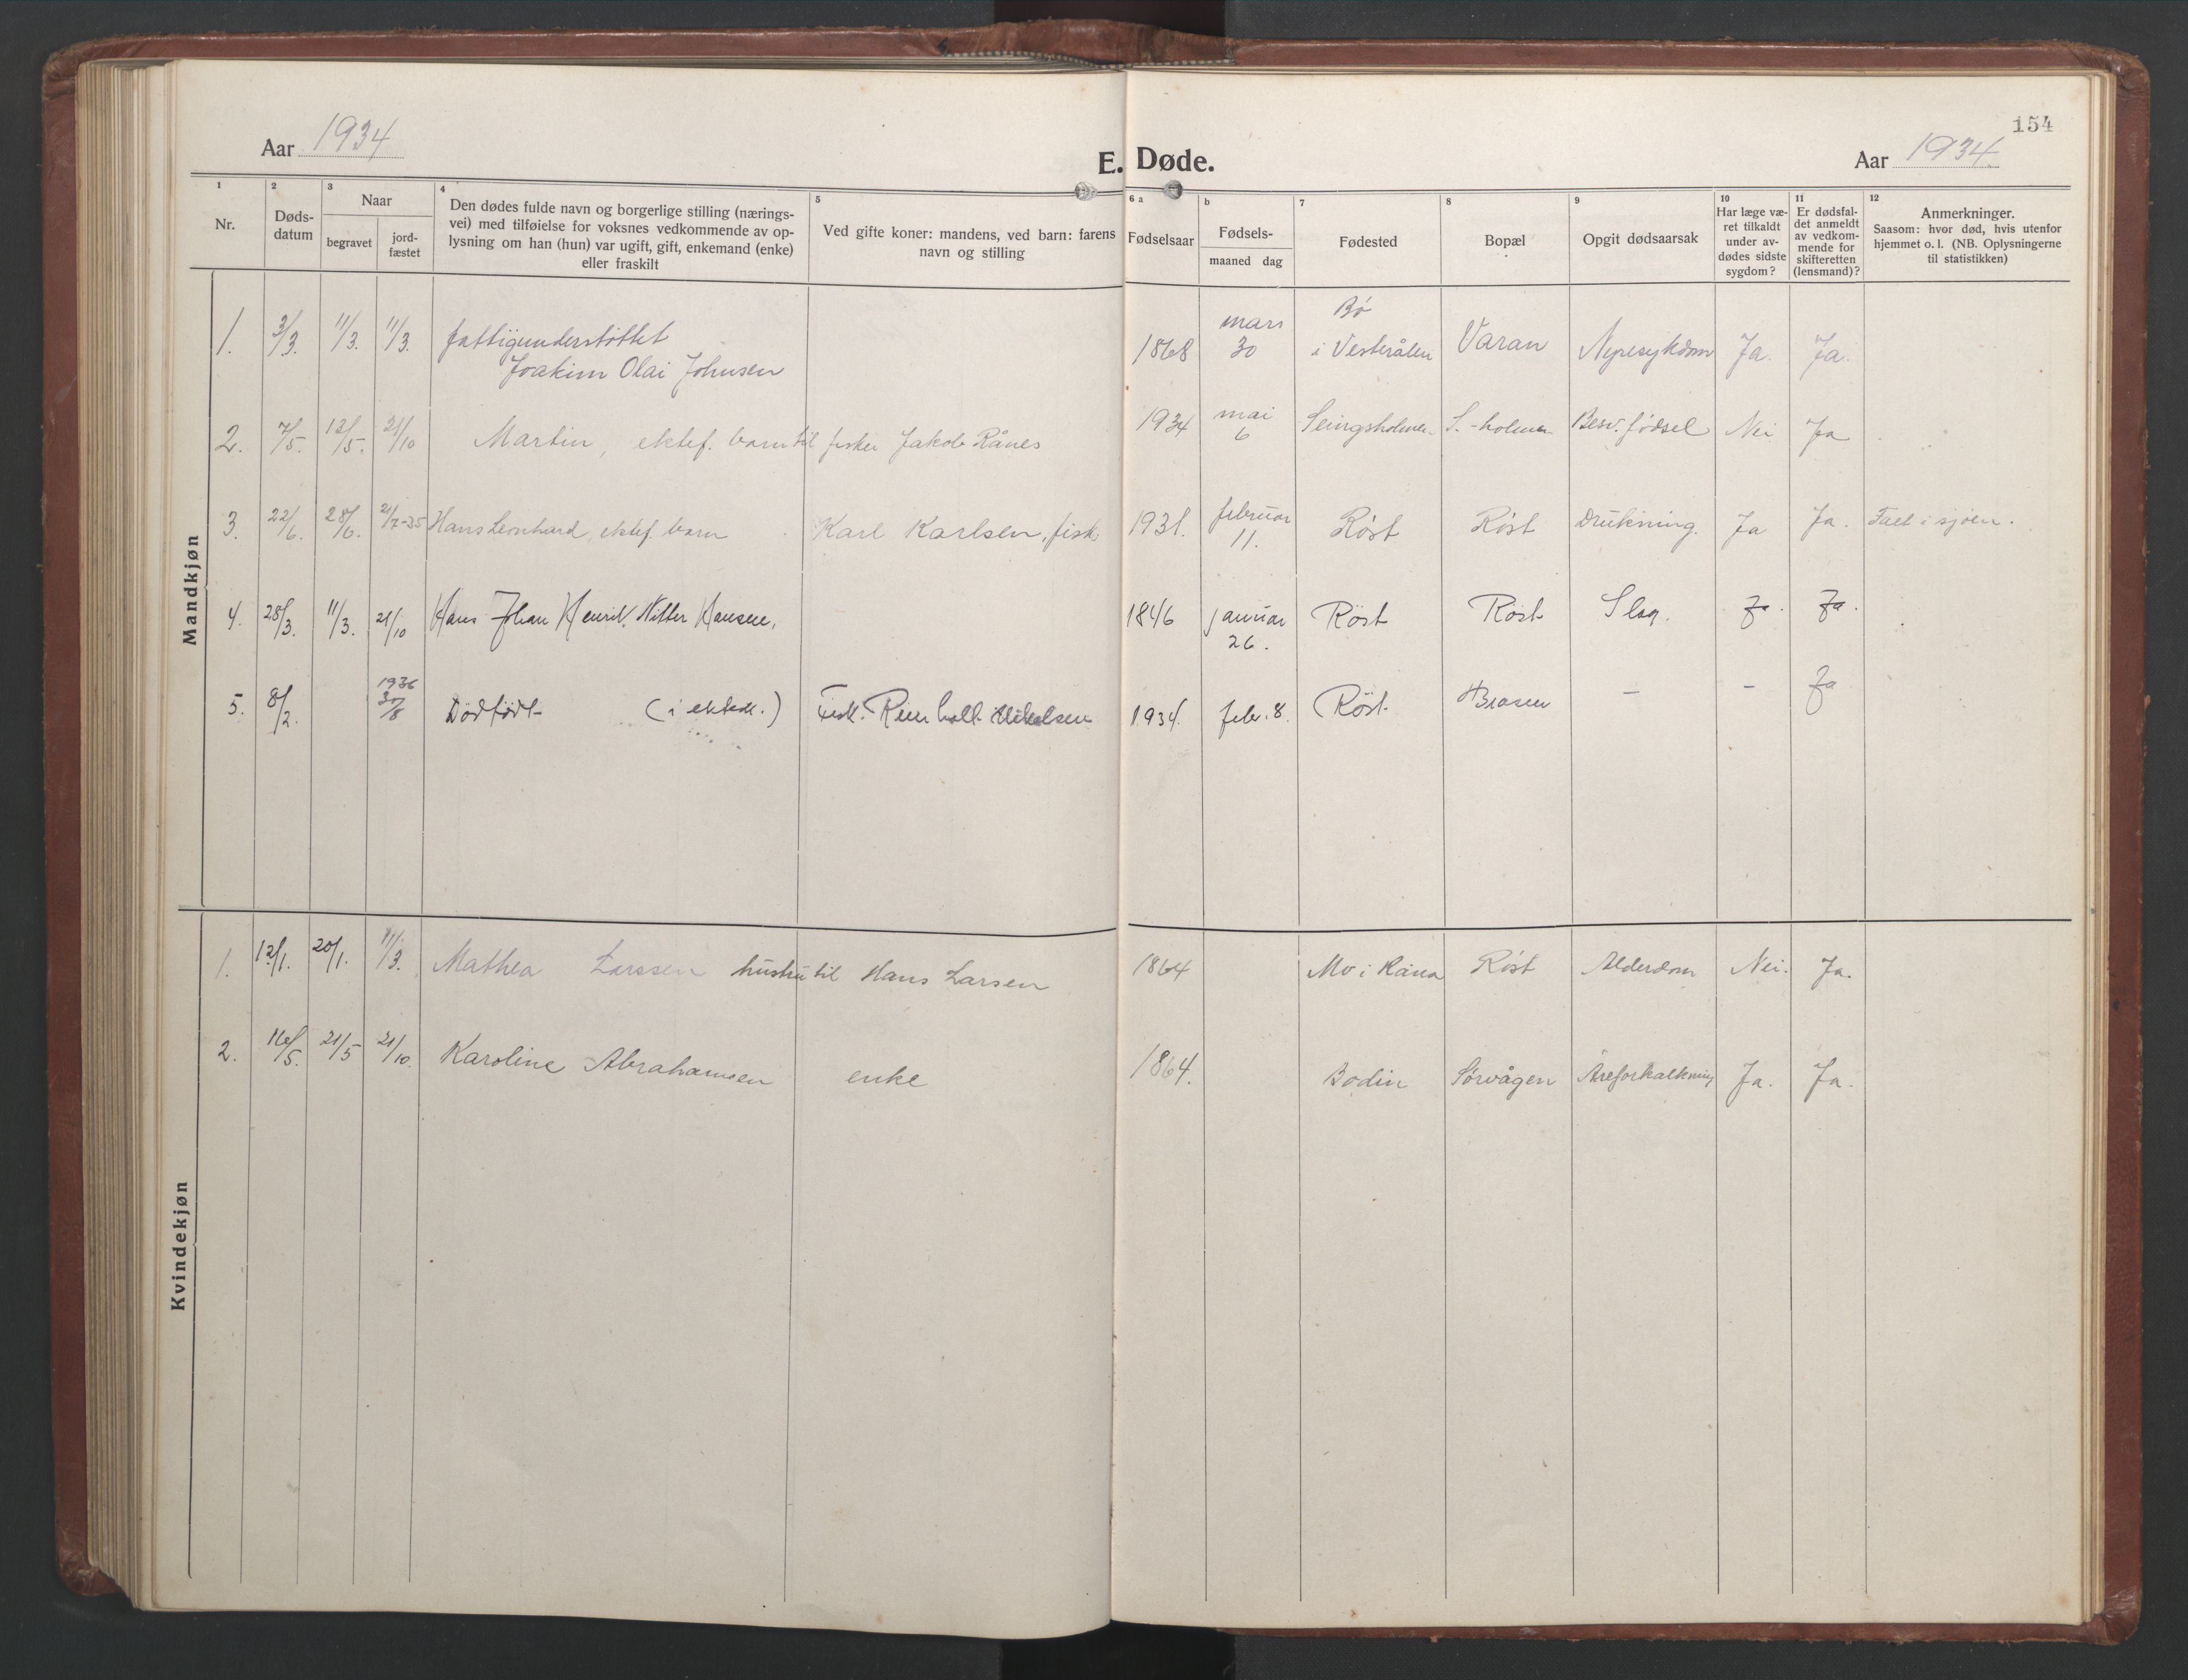 154
Aar 1934
E. Døde.
Aar 1934
1 2 3 4 5 6 a b 7 8 9 10 11 12
Nr.
Døds-
datum
Naar
begravet
jord-
fæstet
Den dødes fulde navn og borgerlige stilling (nærings-
vei) med tilføielse for voksnes vedkommende av op-
lysning om han (hun) var ugift, gift, enkemand (enke)
eller fraskilt
Ved gifte koner: mandens, ved barn: farens
navn og stilling
Fødselsaar
Fødsels-
maaned dag
Fødested
Bopæl
Opgit dødsaarsak
Har læge væ-
ret tilkaldt
under av-
dødes sidste
sygdom?
Er dødsfal-
det anmeldt
av vedkom-
mende for
skifteretten
(lensmand)?
Anmerkninger.
Saasom: hvor død, hvis utenfor
hjemmet o. l. (NB. Oplysningerne
til statistikken)
Mandkjøn
1. 3/3. 11/3. 11/3. fattigunderstøttet
Joakim Olai Johnsen
1868 mars 30 Bø i Vesterålen Varan Nyresykdom Ja. Ja.
2. 7/5. 12/5. 21/10 Martin, ektef. barn til fisker Jakob Rånes 1934 mai 6 S.-holmen Besv. fødsel Nei Ja
3. 22/6. 28/6. 21/7-35 Hans Leonhard, ektef. barn Karl Karlsen, fisk. 1931. februar 11. Røst Røst Drukning. Ja Ja. Falt i sjøen.
4. 28/3. 11/3. 21/10 Hans Johan Henrik Nitter Hansen, 1846 januar 26. Røst Røst Slag. Ja. Ja.
5. 8/2. 1936 30/8 Dødfødt (i ektesk.) Fisk. Reinholt Mikalsen 1934. febr. 8. Røst – – Ja
Kvindekjøn
1. 12/1. 20/1. 11/3. Mathea Larssen hustru til Hans Larsen 1864 Mo i Rana Røst Alderdom Nei. Ja.
2. 16/5. 21/5 21/10. Karoline Abrahamsen enke 1864. Bodin Sørvågen Åreforkalkning Ja. Ja.